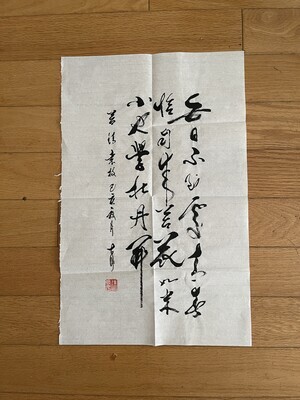 白日不到處青春
恰自来苔花如米
小也學牡丹開
袁枚 己亥 月